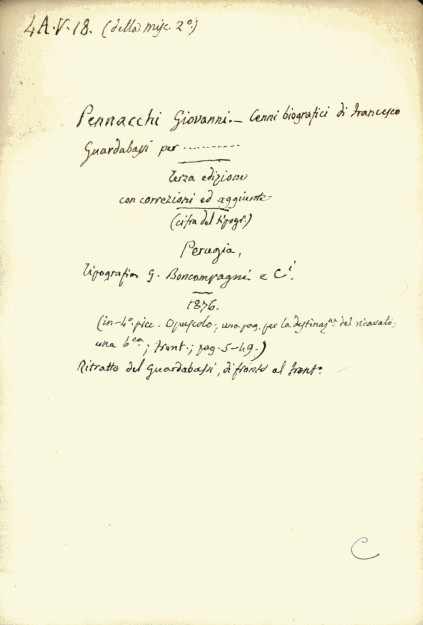 4A.V.18. (della misc. 2ª.)
Pennacchi Giovanni. — Cenni biografici di Francesco
Guardabassi per ..........
Terza edizione
con correzioni ed aggiunte
(cifra del tipogr.)
Perugia,
Tipografia G. Boncompagni e Cⁱ.
1876.
(in-4º. picc. Opuscolo; una pag. per la destinazⁿᵉ del ricavato;
una bᶜᵃ; front.; pag. 5-49.)
Ritratto del Guardabassi, di fronte al frontº.
C